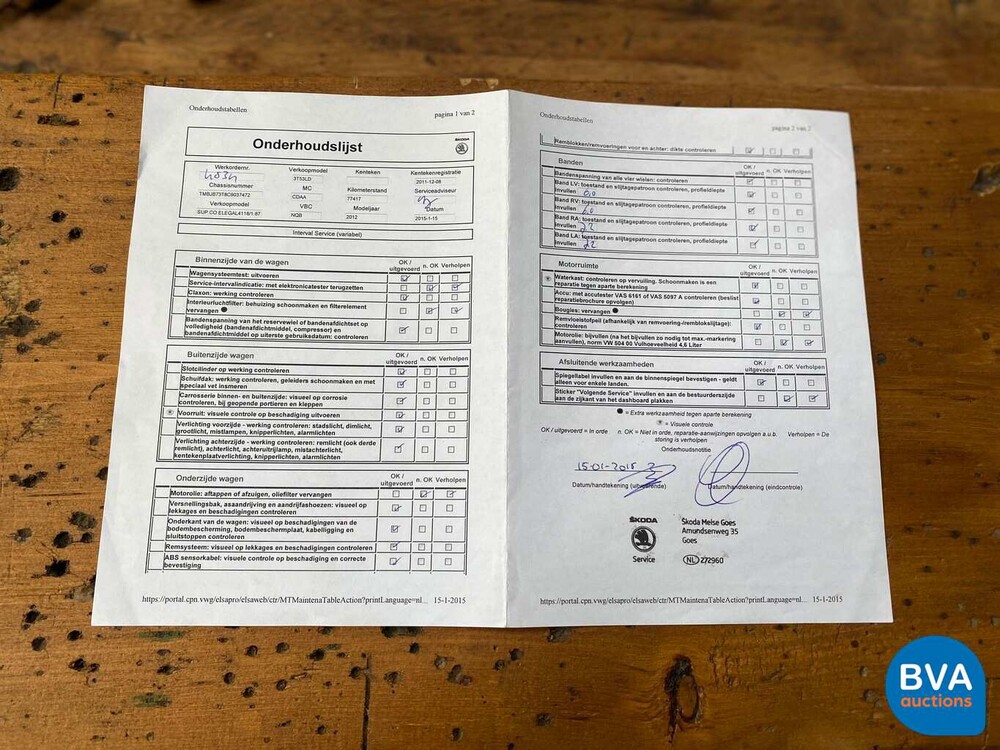 Onderhoudstabellen
pagina 1 van 2
Onderhoudslijst
ŠKODA
Werkordernr.
Verkoopmodel
Kenteken
Kentekenregistratie
3T53LD
2011-12-08
Chassisnummer
MC
Kilometerstand
Serviceadviseur
CDAA
77417
Verkoopmodel
VBC
Modeljaar
Datum
SUP.CO ELEGAL4118/1.87
NQB
2012
2015-1-15
Interval Service (variabel)
Binnenzijde van de wagen
OK / uitgevoerd
n. OK
Verholpen
Wagensysteemtest: uitvoeren
Service-intervalindicatie: met elektronicatester terugzetten
Claxon: werking controleren
Interieurluchtfilter: behuizing schoonmaken en filterelement
vervangen
Bandenspanning van het reservewiel of bandenafdichtset op
volledigheid (bandenafdichtmiddel, compressor) en
bandenafdichtmiddel op uiterste gebruiksdatum: controleren
Buitenzijde wagen
OK / uitgevoerd
n. OK
Verholpen
Slotcilinder op werking controleren
Schuifdak: werking controleren, geleiders schoonmaken en met
speciaal vet insmeren
Carrosserie binnen- en buitenzijde: visueel op corrosie
controleren, bij geopende portieren en kleppen
Voorruit: visuele controle op beschadiging uitvoeren
Verlichting voorzijde - werking controleren: stadslicht, dimlicht,
grootlicht, mistlampen, knipperlichten, alarmlichten
Verlichting achterzijde - werking controleren: remlicht (ook derde
remlicht), achterlicht, achteruitrijlamp, mistachterlicht,
kentekenplaatverlichting, knipperlichten, alarmlichten
Onderzijde wagen
OK / uitgevoerd
n. OK
Verholpen
Motorolie: aftappen of afzuigen, oliefilter vervangen
Versnellingsbak, asaandrijving en aandrijfashoezen: visueel op
lekkages en beschadigingen controleren
Onderkant van de wagen: visueel op beschadigingen van de
bodembescherming, bodembeschermplaat, kabelligging en
sluitstoppen controleren
Remsysteem: visueel op lekkages en beschadigingen controleren
ABS sensorkabel: visuele controle op beschadiging en correcte
bevestiging
https://portal.cpn.vwg/elsapro/elsaweb/ctr/MTMaintenaTableAction?printLanguage=nl...
15-1-2015
Onderhoudstabellen
pagina 2 van 2
Remblokken/remvoeringen voor en achter: dikte controleren
Banden
OK / uitgevoerd
n. OK
Verholpen
Bandenspanning van alle vier wielen: controleren
Band LV: toestand en slijtagepatroon controleren, profieldiepte
invullen
Band RV: toestand en slijtagepatroon controleren, profieldiepte
invullen
Band RA: toestand en slijtagepatroon controleren, profieldiepte
invullen
Band LA: toestand en slijtagepatroon controleren, profieldiepte
invullen
Motorruimte
OK / uitgevoerd
n. OK
Verholpen
Waterkast: controleren op vervuiling. Schoonmaken is een
reparatie tegen aparte berekening
Accu: met accutester VAS 6161 of VAS 5097 A controleren (beslist
reparatiebrochure opvolgen)
Bougies: vervangen
Remvloeistofpeil (afhankelijk van remvoering-/remblokslijtage):
controleren
Motorolie: bijvullen (na het bijvullen zo nodig tot max.-markering
aanvullen), norm VW 504 00 Vulhoeveelheid 4,6 Liter
Afsluitende werkzaamheden
OK / uitgevoerd
n. OK
Verholpen
Spiegellabel invullen en aan de binnenspiegel bevestigen - geldt
alleen voor enkele landen.
Sticker "Volgende Service" invullen en aan de bestuurderszijde
aan de zijkant van het dashboard plakken
= Extra werkzaamheid tegen aparte berekening
= Visuele controle
OK / uitgevoerd = In orde
n. OK = Niet in orde, reparatie-aanwijzingen opvolgen a.u.b.
Verholpen = De
storing is verholpen
Onderhoudsnotitie
15-01-2015
Datum/handtekening (uitvoerende)
Datum/handtekening (eindcontrole)
ŠKODA
Service
Škoda Meise Goes
Amundsenweg 35
Goes
NL 272960
https://portal.cpn.vwg/elsapro/elsaweb/ctr/MTMaintenaTableAction?printLanguage=nl...
15-1-2015
BVA
auctions